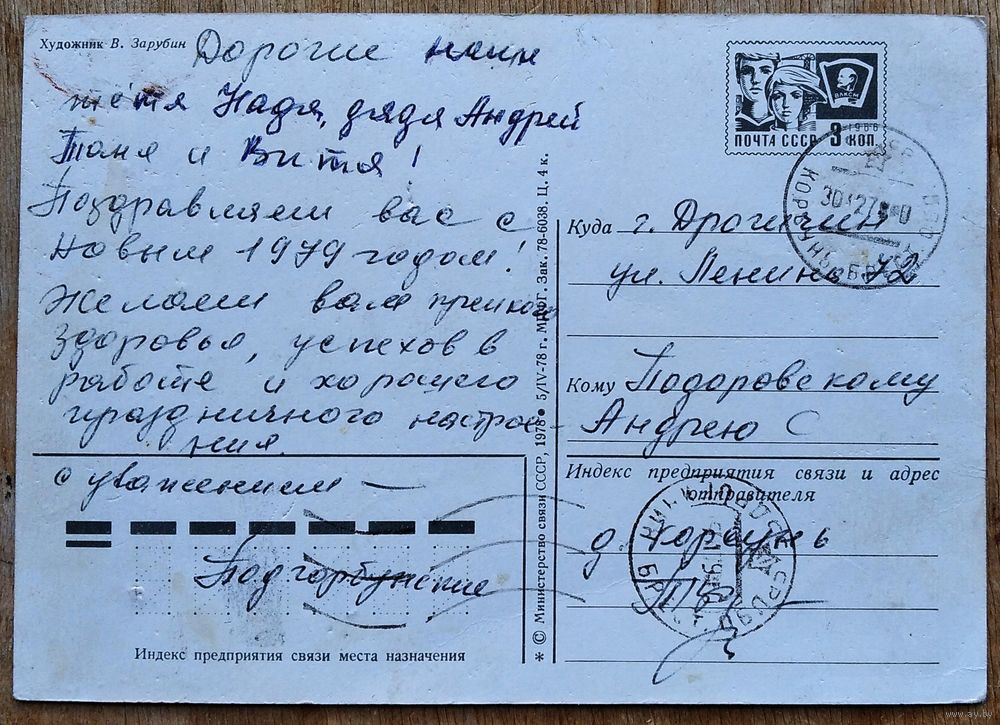 Художник В. Зарубин
Дорогие наши
тётя Надя, дядя Андрей
Таня и Витя!
Поздравляем вас с
Новым 1979 годом!
Желаем вам
здоровья, успехов в
работе и хорошего
праздничного настрое-
ния.
с уважением —
Индекс предприятия связи места назначения
* © Министерство связи СССР, 1978 • 5/IV-78 г. Зак. 78-6038. Ц. 4 к.
ВЛКСМ
1966
ПОЧТА СССР 3 КОП.
Куда г. Дрогичин
ул. Ленина 72
Кому Подоровскому
Андрею С
Индекс предприятия связи и адрес
отправителя
д.
www.ay.by